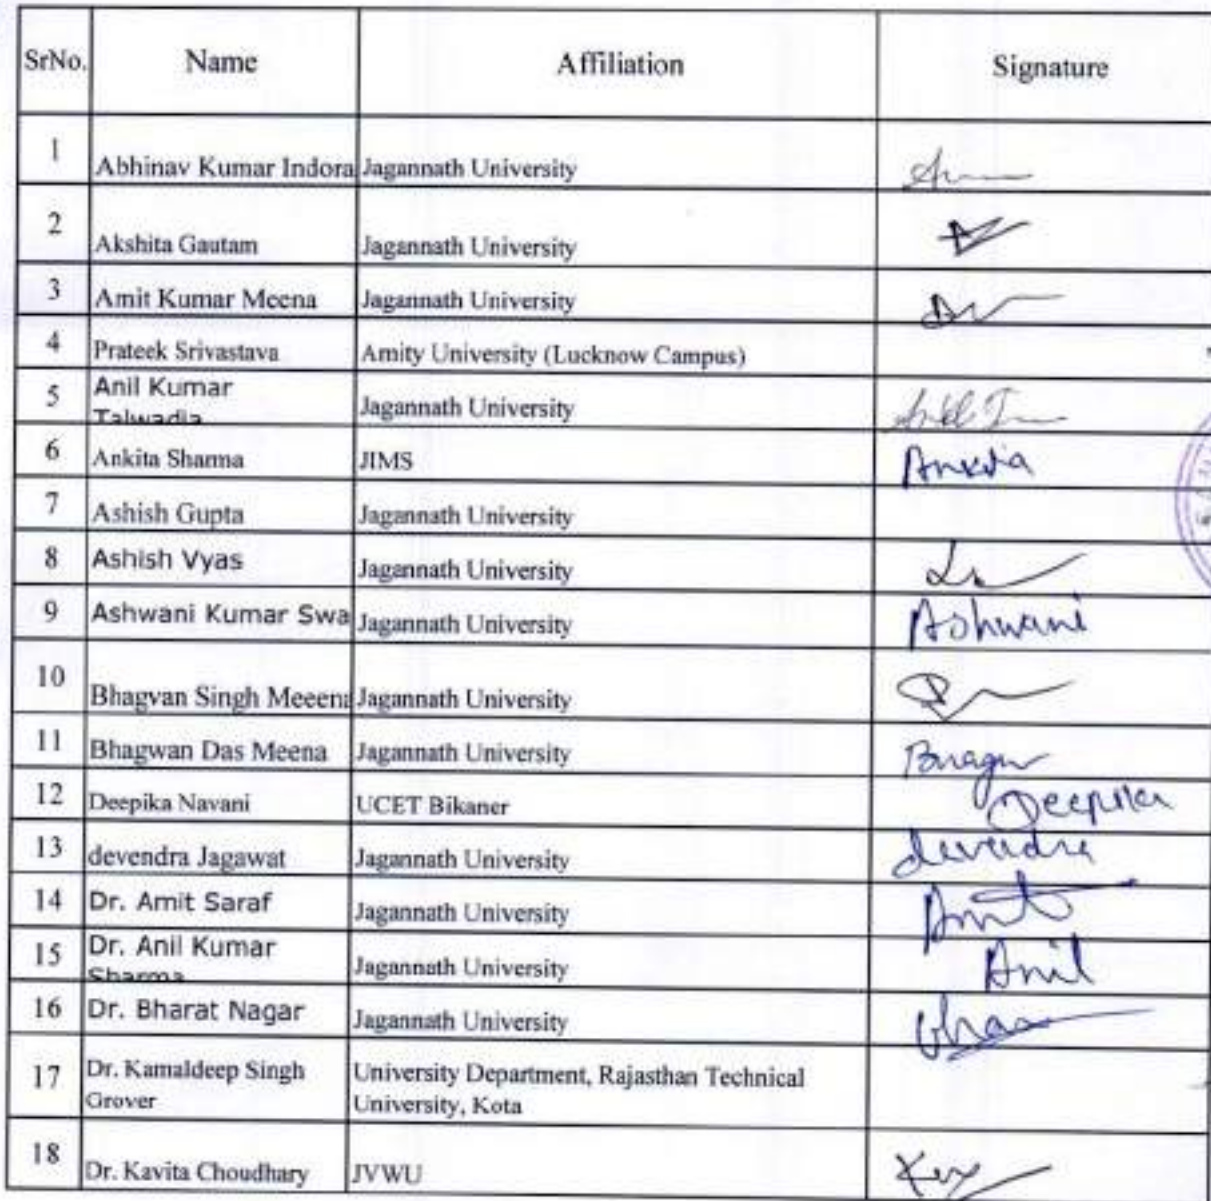 SrNo. Name Affiliation Signature
1 Abhinav Kumar Indora Jagannath University
2 Akshita Gautam Jagannath University
3 Amit Kumar Meena Jagannath University
4 Prateek Srivastava Amity University (Lucknow Campus)
5 Anil Kumar
Talwadia Jagannath University Anil
6 Ankita Sharma JIMS Ankita
7 Ashish Gupta Jagannath University
8 Ashish Vyas Jagannath University
9 Ashwani Kumar Swa Jagannath University Ashwani
10 Bhagvan Singh Meeena Jagannath University
11 Bhagwan Das Meena Jagannath University
12 Deepika Navani UCET Bikaner Deepika
13 devendra Jagawat Jagannath University devendra
14 Dr. Amit Saraf Jagannath University Amit
15 Dr. Anil Kumar
Sharma Jagannath University Anil
16 Dr. Bharat Nagar Jagannath University
17 Dr. Kamaldeep Singh
Grover University Department, Rajasthan Technical
University, Kota
18 Dr. Kavita Choudhary JVWU